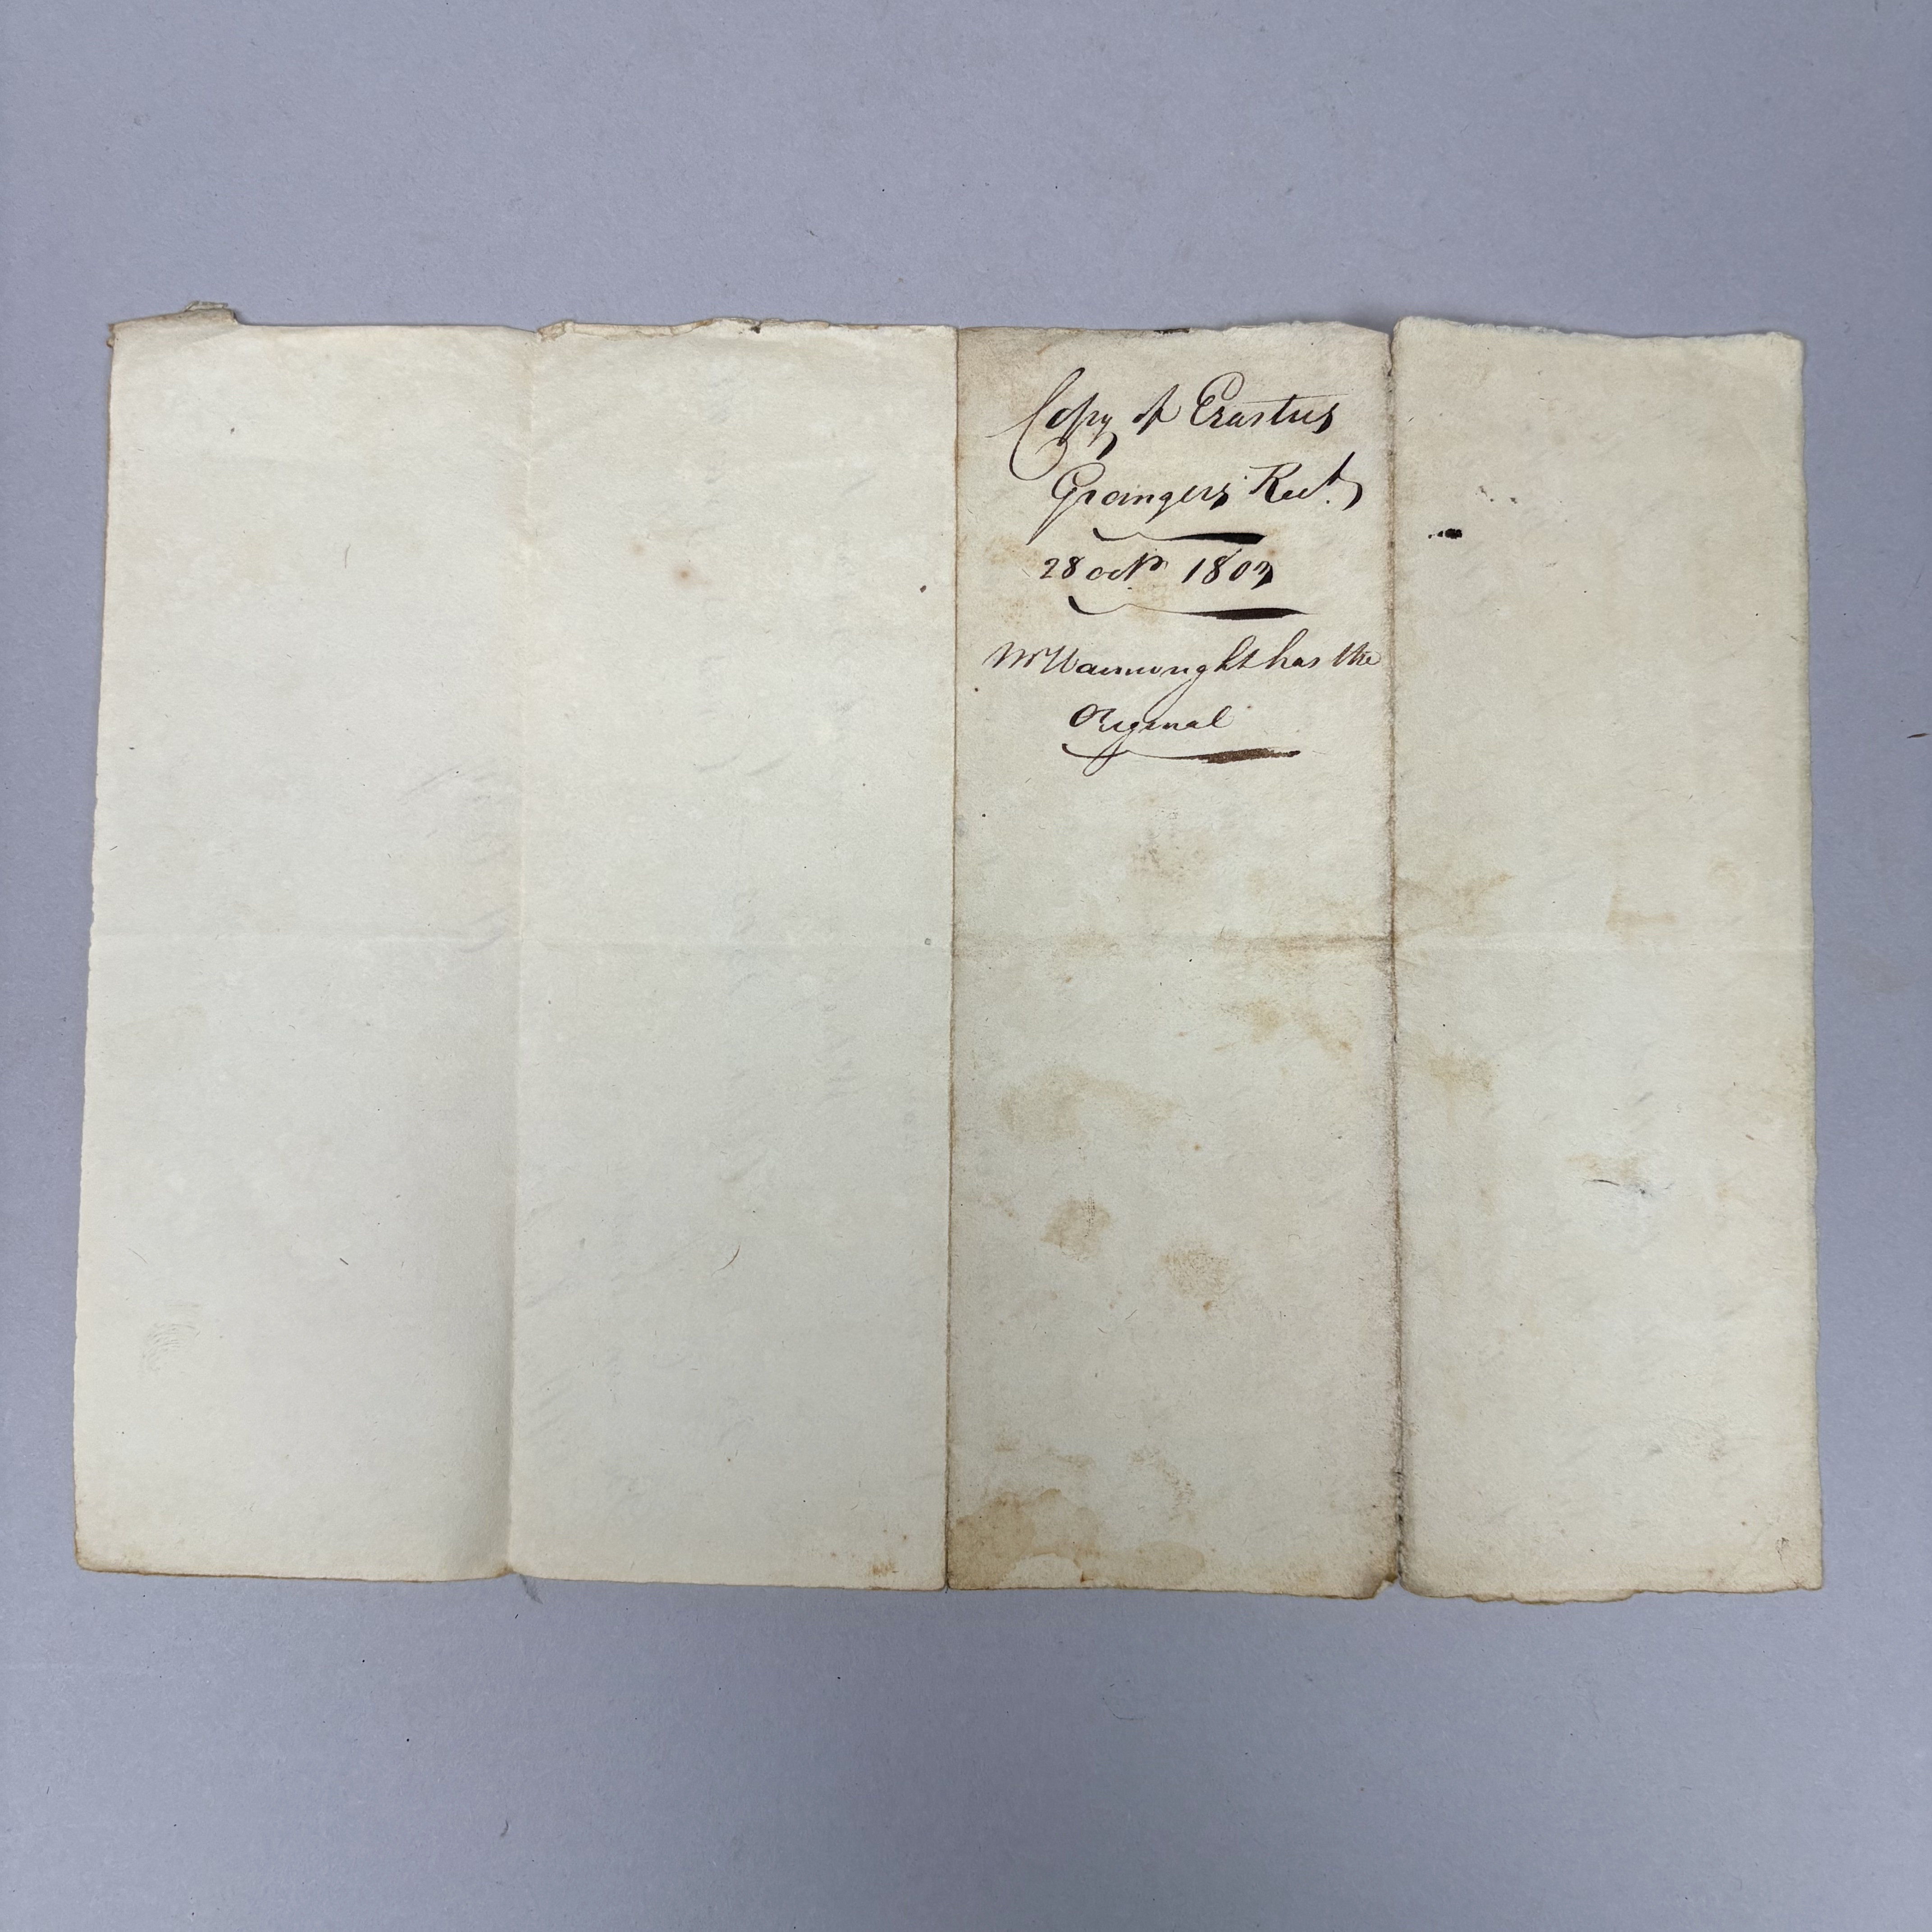 Copy of Erastus
Grangers Rect.
28 octr 1807
Mr Wainwright has the
Original